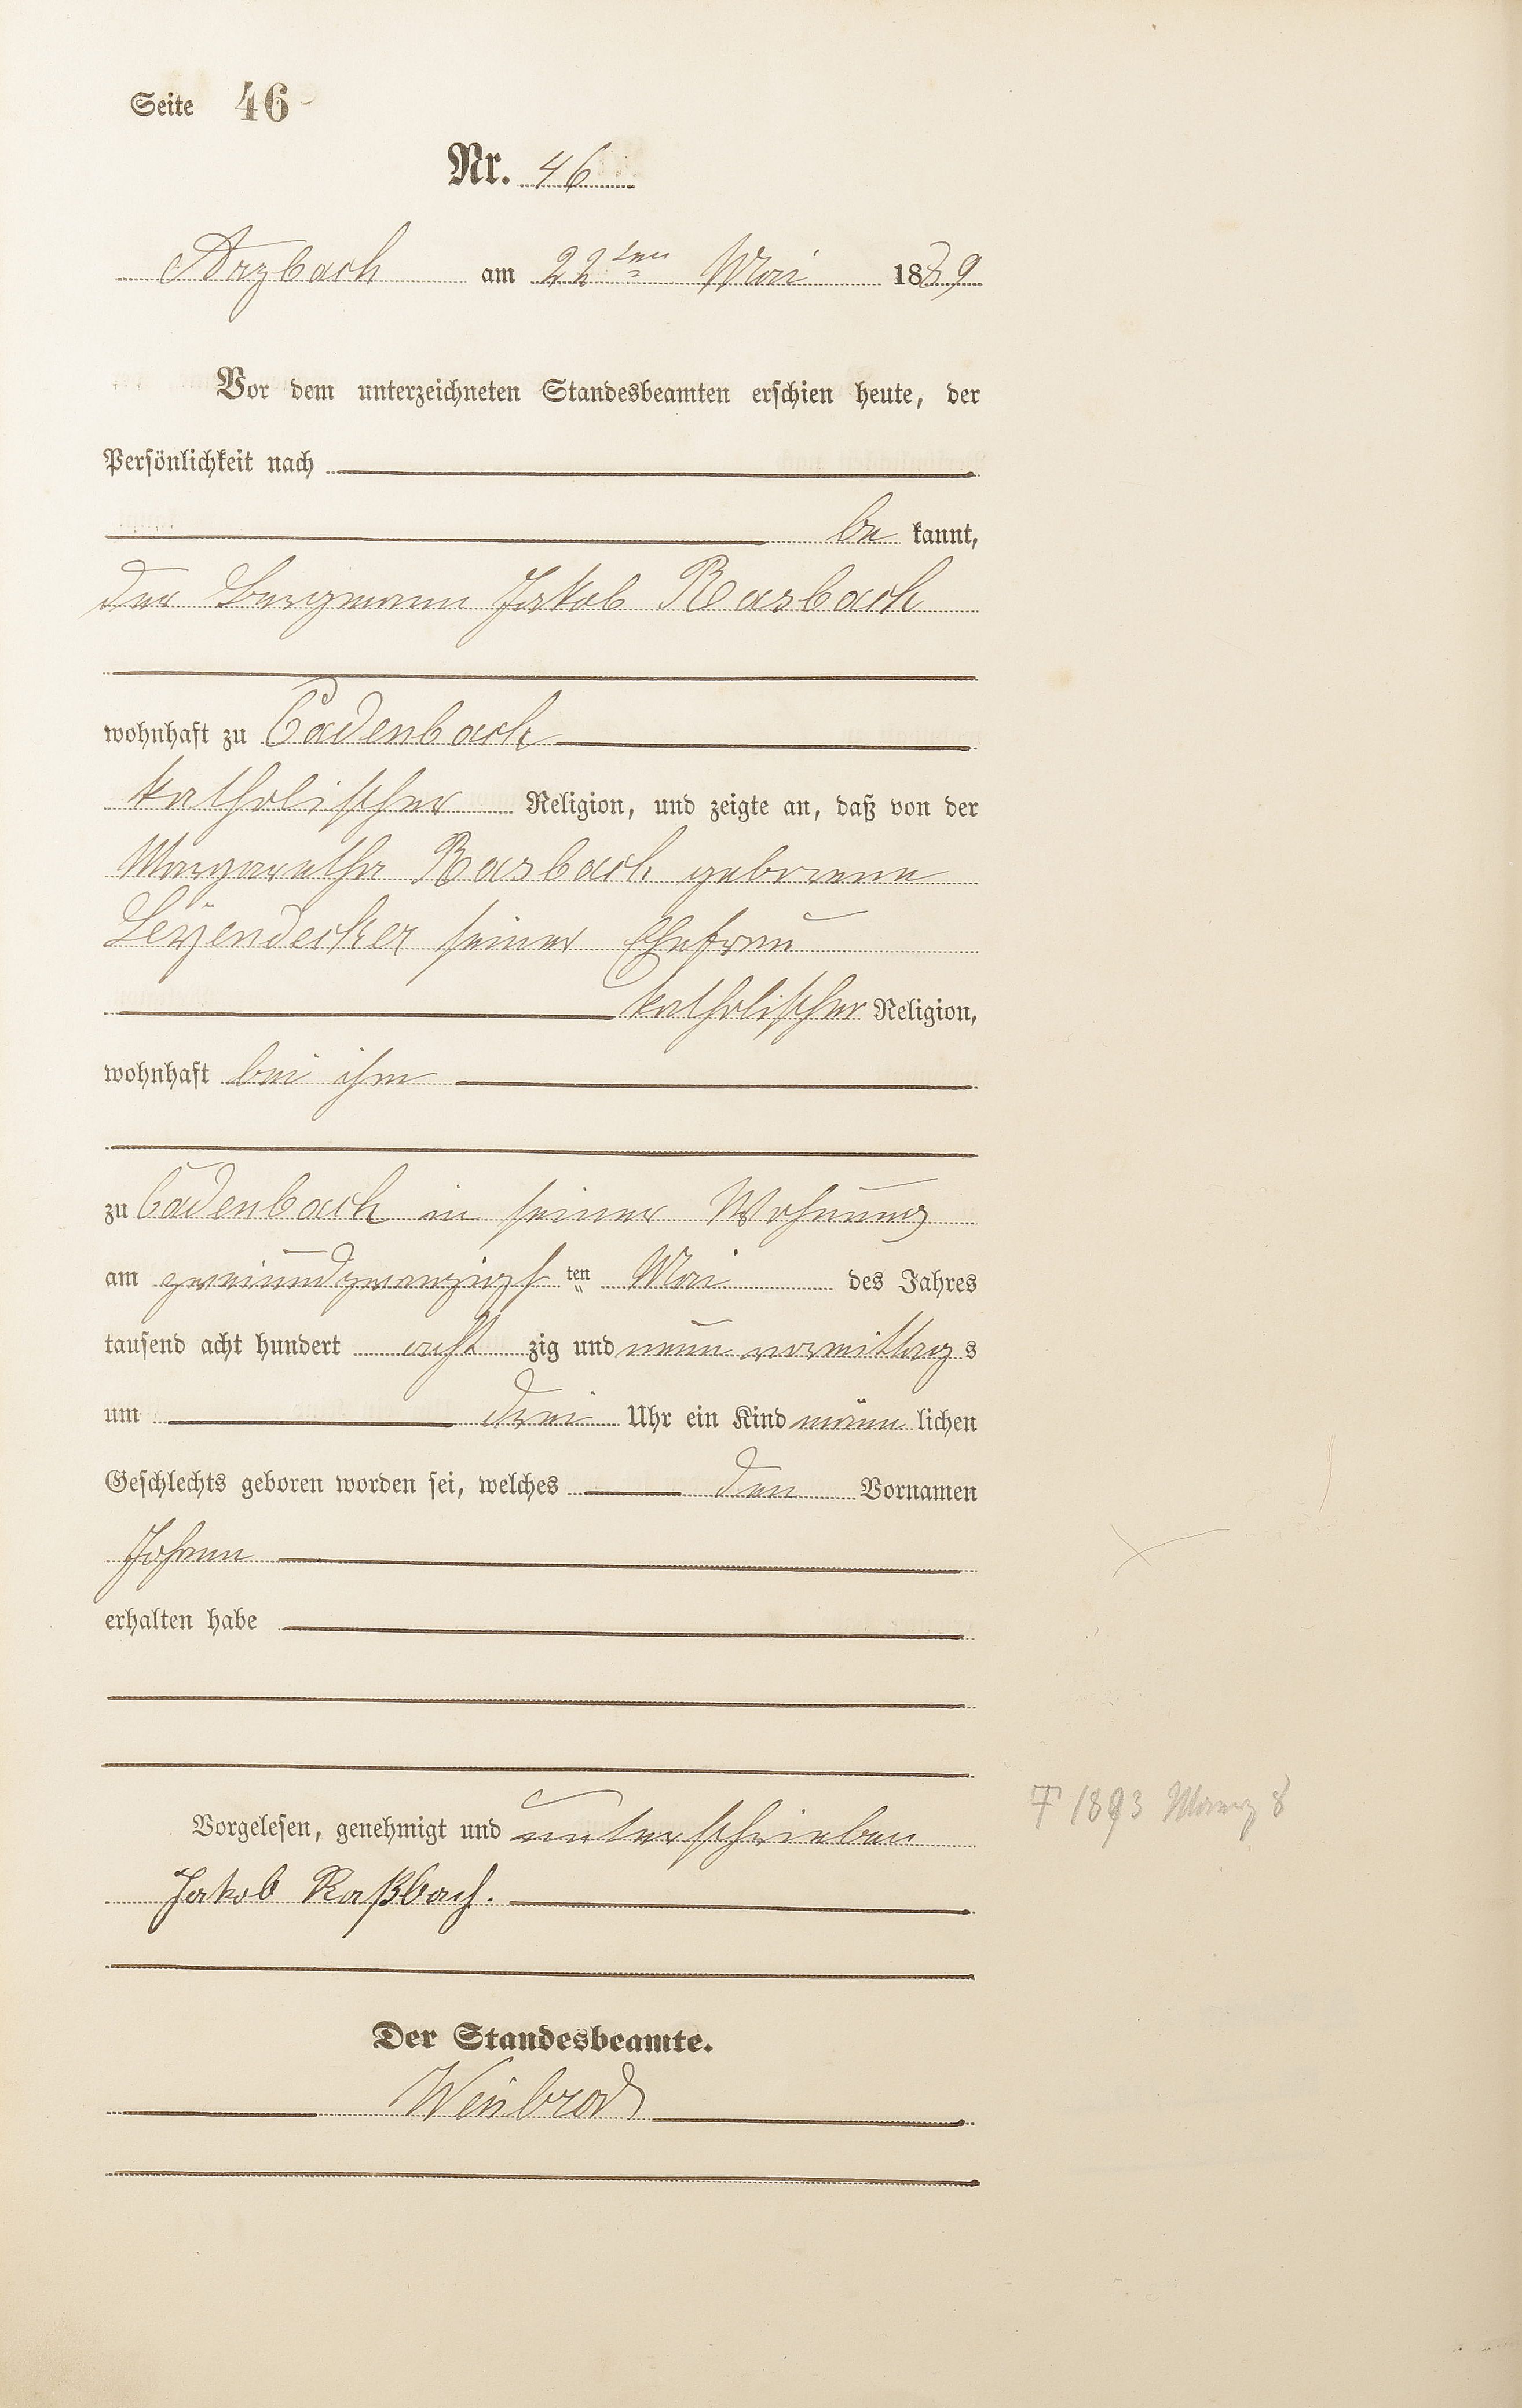 Seite 46
Nr. 46
Arzbach am 22ten Mai 1889
Vor dem unterzeichneten Standesbeamten erschien heute, der
Persönlichkeit nach
be kannt,
der Bergmann Jakob Rasbach
wohnhaft zu Cadenbach
katholischer Religion, und zeigte an, daß von der
Margaretha Rasbach geborene
Leÿendecker seiner Ehefrau
katholischer Religion,
wohnhaft bei ihm
zu Cadenbach in seiner Wohnung
am zweiundzwanzigsten Mai des Jahres
tausend acht hundert acht zig und neun vormittags
um drei Uhr ein Kind männ lichen
Geschlechts geboren worden sei, welches den Vornamen
Johann
erhalten habe
Vorgelesen, genehmigt und unterschrieben
† 1893 März 8
Jakob Raßbach.
Der Standesbeamte.
Weinbrod